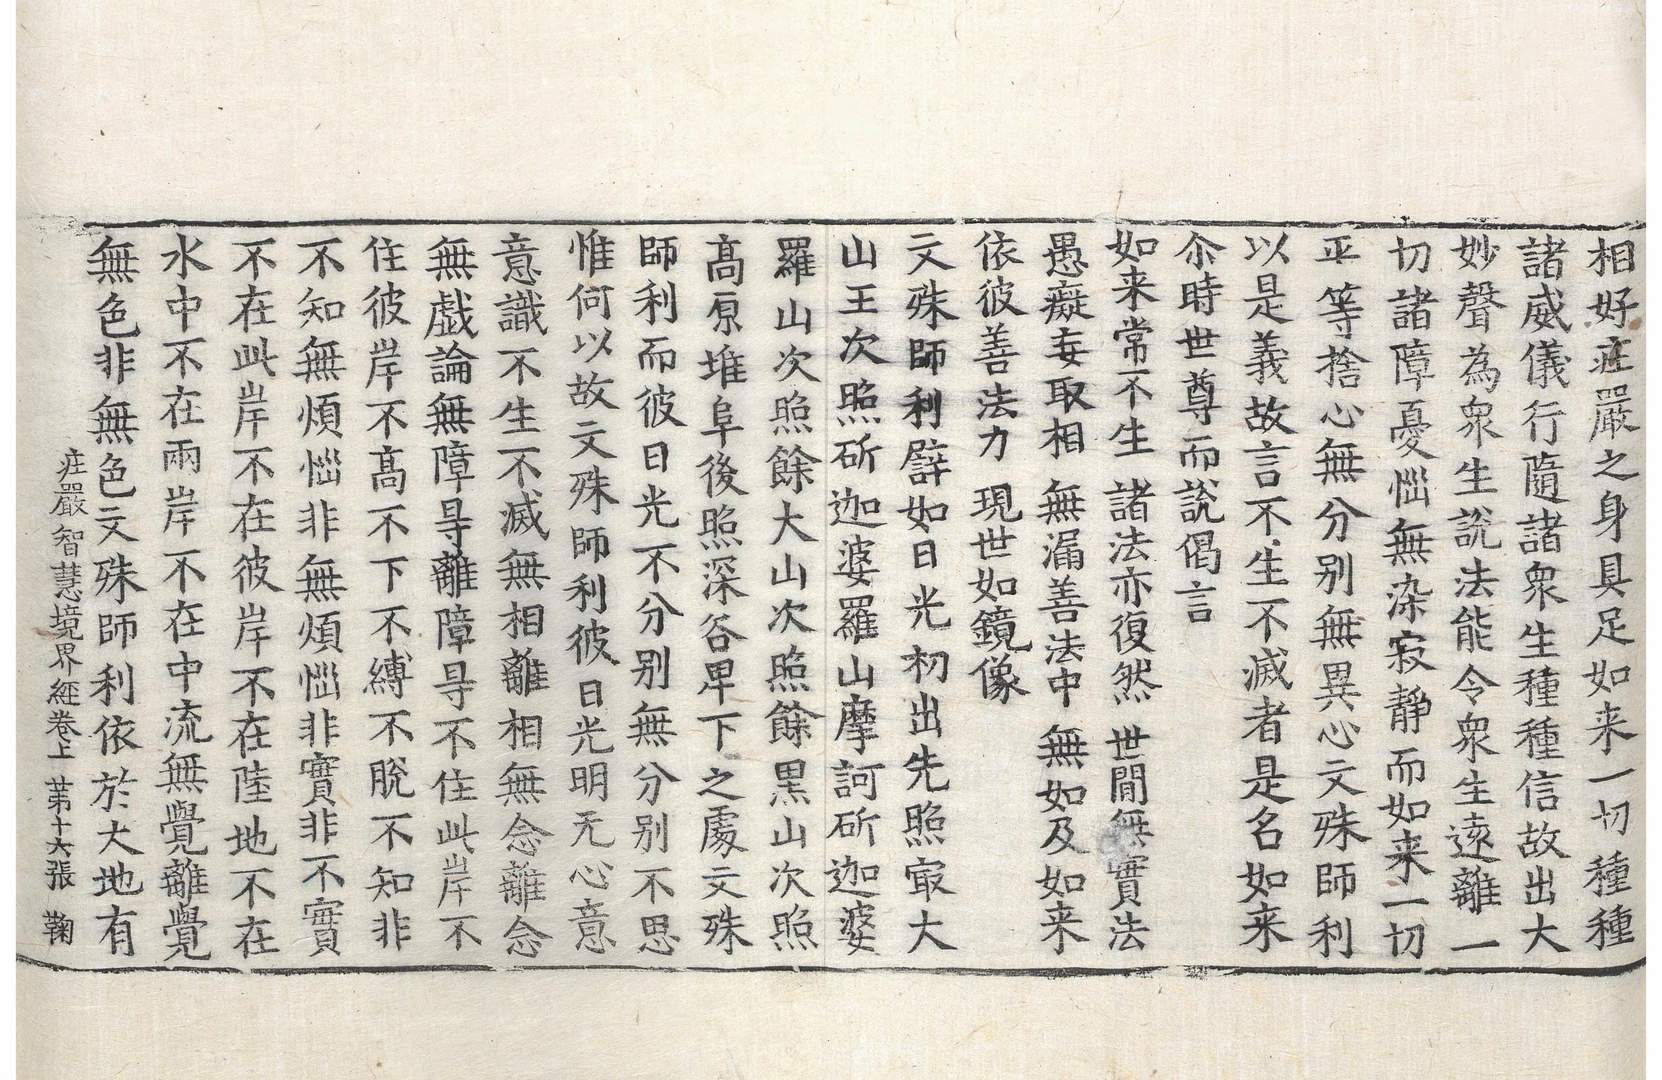 相好庄嚴之身具足如来一切種種
諸威儀行隨諸衆生種種信故出大
妙聲為衆生說法能令衆生遠離一
切諸障憂惱無染寂靜而如来一切
平等捨心無分别無異心文殊師利
以是義故言不生不滅者是名如来
尒時世尊而說偈言
如来常不生 諸法亦復然 世間無實法
愚癡妄取相 無漏善法中 無如及如来
依彼善法力 現世如鏡像
文殊師利譬如日光初出先照㝡大
山王次照斫迦婆羅山摩訶斫迦婆
羅山次照餘大山次照餘黒山次照
髙原堆阜後照深谷卑下之處文殊
師利而彼日光不分别無分别不思
惟何以故文殊師利彼日光明无心意
意識不生不滅無相離相無念離念
無戲論無障㝵離障㝵不住此岸不
住彼岸不髙不下不縛不脫不知非
不知無煩惱非無煩惱非實非不實
不在此岸不在彼岸不在陸地不在
水中不在兩岸不在中流無覺離覺
無色非無色文殊師利依於大地有
庄嚴智慧境界經卷上 苐十六張 鞠